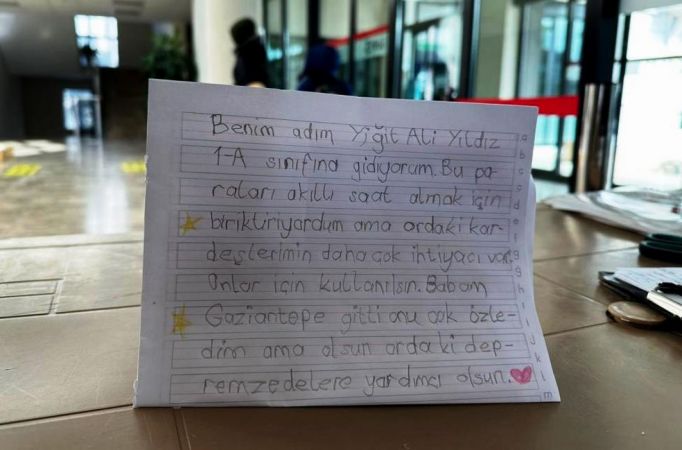 Benim adım Yiğit Ali Yıldız
1-A sınıfına gidiyorum. Bu pa-
raları akıllı saat almak için
biriktiriyordum ama ordaki kar-
deşlerimin daha çok ihtiyacı var.
Onlar için kullanılsın. Babam
Gaziantepe gitti onu çok özle-
dim ama olsun ordaki dep-
remzedelere yardımcı olsun.